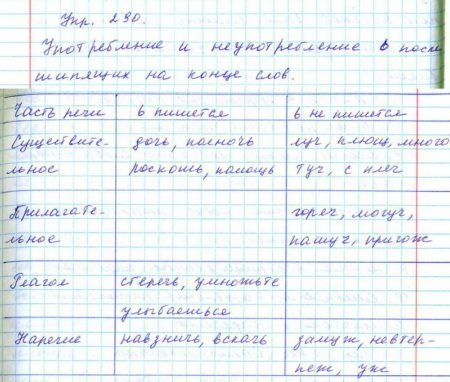 Упр. 290.
Употребление и неупотребление ь после
шипящих на конце слов.
Часть речи ь пишется ь не пишется
Существите- дочь, полночь луч, плющ, много
льное роскошь, помощь туч, с плеч
Прилагате- горяч, могуч,
льное пахуч, пригож
Глагол стеречь, умножьте
улыбаешься
Наречие навзничь, вскачь замуж, невтер-
пеж, уж